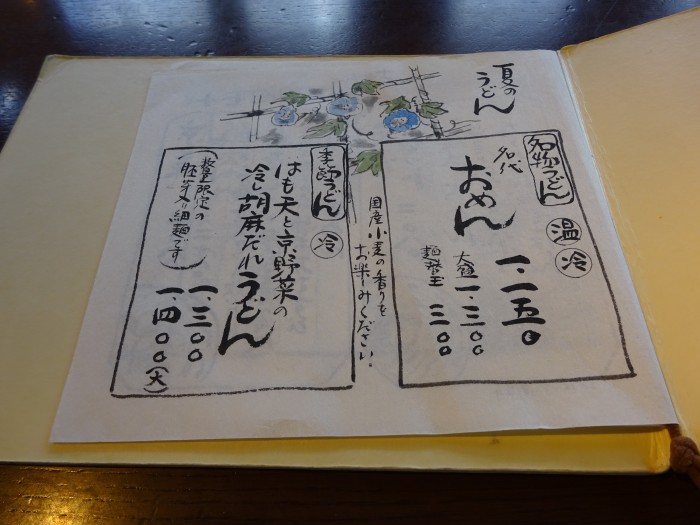 夏の
うどん
名物うどん
温
冷
名代
おめん
一、一五〇
大盛一、三〇〇
麺替玉 三〇〇
国産小麦の香りを
お楽みください
季節うどん
冷
はも天と京野菜の
冷し胡麻だれうどん
(数量限定の
胚芽入り細麺です)
一、三〇〇
一、四〇〇(大)